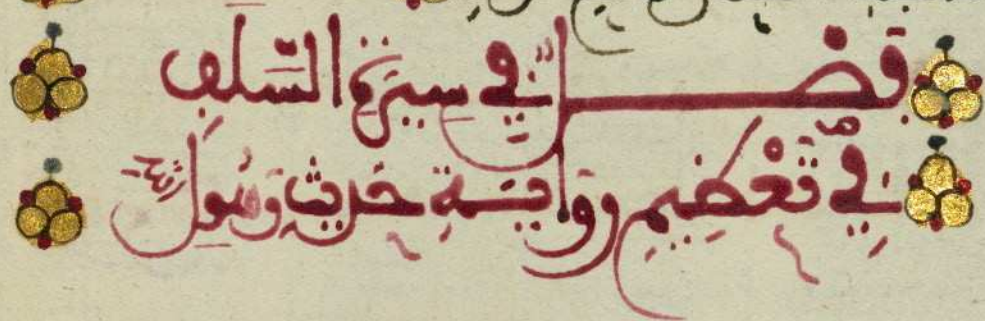 فصل في سيرة السلف
في تعظيم رواية حديث رسول الله